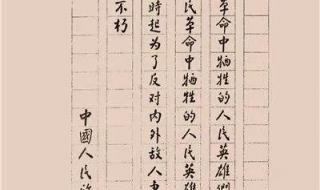 革命中牺牲的人民英雄們
民革命中牺牲的人民英雄
時起为了反对内外敌人
不朽
中國人民